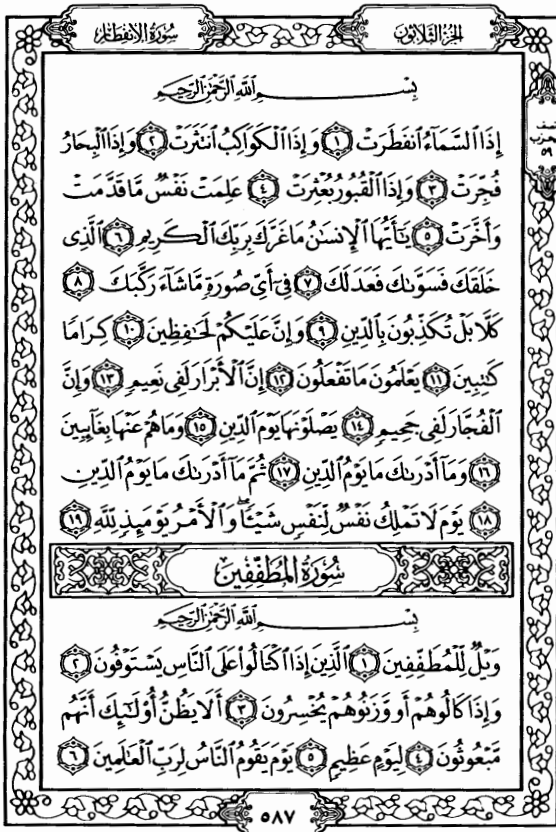 سُورَةُ الانفِطَارِ
الجُزْءُ الثَّلَاثُونَ
نصف
الحزب
٥٩
بِسْمِ ٱللَّهِ ٱلرَّحْمَٰنِ ٱلرَّحِيمِ
إِذَا ٱلسَّمَآءُ ٱنفَطَرَتْ ١ وَإِذَا ٱلْكَوَاكِبُ ٱنتَثَرَتْ ٢ وَإِذَا ٱلْبِحَارُ
فُجِّرَتْ ٣ وَإِذَا ٱلْقُبُورُ بُعْثِرَتْ ٤ عَلِمَتْ نَفْسٌ مَّا قَدَّمَتْ
وَأَخَّرَتْ ٥ يَٰٓأَيُّهَا ٱلْإِنسَٰنُ مَا غَرَّكَ بِرَبِّكَ ٱلْكَرِيمِ ٦ ٱلَّذِى
خَلَقَكَ فَسَوَّىٰكَ فَعَدَلَكَ ٧ فِىٓ أَىِّ صُورَةٍ مَّا شَآءَ رَكَّبَكَ ٨
كَلَّا بَلْ تُكَذِّبُونَ بِٱلدِّينِ ٩ وَإِنَّ عَلَيْكُمْ لَحَٰفِظِينَ ١٠ كِرَامًا
كَٰتِبِينَ ١١ يَعْلَمُونَ مَا تَفْعَلُونَ ١٢ إِنَّ ٱلْأَبْرَارَ لَفِى نَعِيمٍ ١٣ وَإِنَّ
ٱلْفُجَّارَ لَفِى جَحِيمٍ ١٤ يَصْلَوْنَهَا يَوْمَ ٱلدِّينِ ١٥ وَمَا هُمْ عَنْهَا بِغَآئِبِينَ
١٦ وَمَآ أَدْرَىٰكَ مَا يَوْمُ ٱلدِّينِ ١٧ ثُمَّ مَآ أَدْرَىٰكَ مَا يَوْمُ ٱلدِّينِ
١٨ يَوْمَ لَا تَمْلِكُ نَفْسٌ لِّنَفْسٍ شَيْـًٔا ۖ وَٱلْأَمْرُ يَوْمَئِذٍ لِّلَّهِ ١٩
سُورَةُ المُطَفِّفِينَ
بِسْمِ ٱللَّهِ ٱلرَّحْمَٰنِ ٱلرَّحِيمِ
وَيْلٌ لِّلْمُطَفِّفِينَ ١ ٱلَّذِينَ إِذَا ٱكْتَالُوا۟ عَلَى ٱلنَّاسِ يَسْتَوْفُونَ ٢
وَإِذَا كَالُوهُمْ أَو وَّزَنُوهُمْ يُخْسِرُونَ ٣ أَلَا يَظُنُّ أُو۟لَٰٓئِكَ أَنَّهُم
مَّبْعُوثُونَ ٤ لِيَوْمٍ عَظِيمٍ ٥ يَوْمَ يَقُومُ ٱلنَّاسُ لِرَبِّ ٱلْعَٰلَمِينَ ٦
٥٨٧